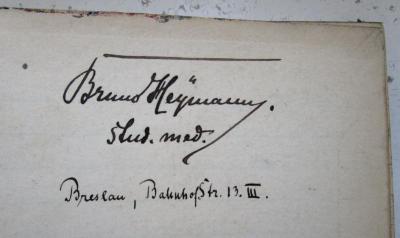 Bruno Heymann.
stud. med.
Breslau, Bahnhofstr. 13. III.